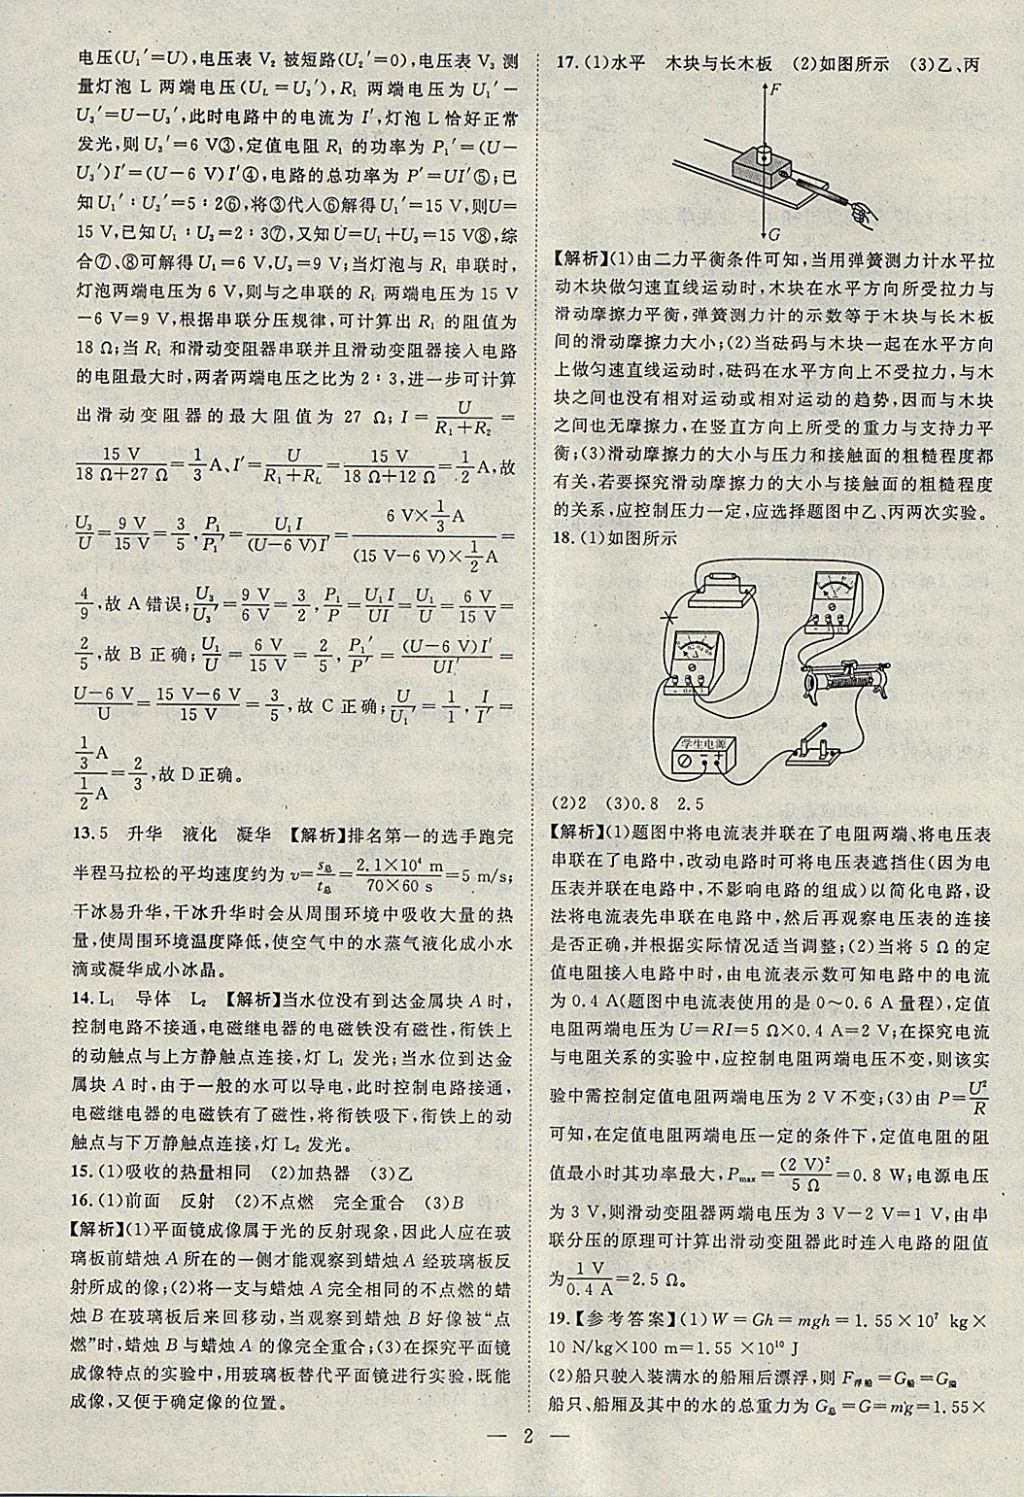 电压(U₁′=U),电压表 V₂ 被短路(U₂′=0),电压表 V₃ 测
量灯泡 L 两端电压(U_L=U₃′),R₁ 两端电压为 U₁′−
U₃′=U−U₃′,此时电路中的电流为 I′,灯泡 L 恰好正常
发光,则 U₃′=6 V③,定值电阻 R₁ 的功率为 P₁′=(U−
U₃′)I′=(U−6 V)I′④,电路的总功率为 P′=UI′⑤;已
知 U₁′∶U₃′=5∶2⑥,将③代人⑥解得 U₁′=15 V,则U=
15 V,已知 U₁∶U₃=2∶3⑦,又知 U=U₁+U₃=15 V⑧,综
合⑦、⑧可解得 U₁=6 V,U₃=9 V;当灯泡与 R₁ 串联时,
灯泡两端电压为 6 V,则与之串联的 R₁ 两端电压为 15 V
−6 V=9 V,根据串联分压规律,可计算出 R₁ 的阻值为
18 Ω;当 R₁ 和滑动变阻器串联并且滑动变阻器接入电路
的电阻最大时,两者两端电压之比为 2∶3,进一步可计算
出滑动变阻器的最大阻值为 27 Ω;I=U/(R₁+R₂)=
15 V/(18 Ω+27 Ω)=1/3 A、I′=U/(R₁+R_L)=15 V/(18 Ω+12 Ω)=1/2 A,故
U₃/U=9 V/15 V=3/5,P₁/P₁′=U₁I/((U−6 V)I′)=(6 V×1/3 A)/((15 V−6 V)×1/2 A)=
4/9,故 A 错误;U₃/U₃′=9 V/6 V=3/2,P₁/P=U₁I/UI=U₁/U=6 V/15 V=
2/5,故 B 正确;U₁/U=6 V/15 V=2/5,P₁′/P′=(U−6 V)I′/UI′=
(U−6 V)/U=(15 V−6 V)/15 V=3/5,故 C 正确;U/U₁′=1/1,I/I′=
(1/3 A)/(1/2 A)=2/3,故 D 正确。
13.5 升华 液化 凝华 【解析】排名第一的选手跑完
半程马拉松的平均速度约为 v=s总/t总=2.1×10⁴ m/(70×60 s)=5 m/s;
干冰易升华,干冰升华时会从周围环境中吸收大量的热
量,使周围环境温度降低,使空气中的水蒸气液化成小水
滴或凝华成小冰晶。
14.L₁ 导体 L₂ 【解析】当水位没有到达金属块 A 时,
控制电路不接通,电磁继电器的电磁铁没有磁性,衔铁上
的动触点与上方静触点连接,灯 L₁ 发光;当水位到达金
属块 A 时,由于一般的水可以导电,此时控制电路接通,
电磁继电器的电磁铁有了磁性,将衔铁吸下,衔铁上的动
触点与下万静触点连接,灯 L₂ 发光。
15.(1)吸收的热量相同 (2)加热器 (3)乙
16.(1)前面 反射 (2)不点燃 完全重合 (3)B
【解析】(1)平面镜成像属于光的反射现象,因此人应在玻
璃板前蜡烛 A 所在的一侧才能观察到蜡烛 A 经玻璃板反
射所成的像;(2)将一支与蜡烛 A 完全相同的不点燃的蜡
烛 B 在玻璃板后来回移动,当观察到蜡烛 B 好像被“点
燃”时,蜡烛 B 与蜡烛 A 的像完全重合;(3)在探究平面镜
成像特点的实验中,用玻璃板替代平面镜进行实验,既能
成像,又便于确定像的位置。
17.(1)水平 木块与长木板 (2)如图所示 (3)乙、丙
F
G
【解析】(1)由二力平衡条件可知,当用弹簧测力计水平拉
动木块做匀速直线运动时,木块在水平方向所受拉力与
滑动摩擦力平衡,弹簧测力计的示数等于木块与长木板
间的滑动摩擦力大小;(2)当砝码与木块一起在水平方向
上做匀速直线运动时,砝码在水平方向上不受拉力,与木
块之间也没有相对运动或相对运动的趋势,因而与木块
之间也无摩擦力,在竖直方向上所受的重力与支持力平
衡;(3)滑动摩擦力的大小与压力和接触面的粗糙程度都
有关,若要探究滑动摩擦力的大小与接触面的粗糙程度
的关系,应控制压力一定,应选择题图中乙、丙两次实验。
18.(1)如图所示
学生电源
− +
(2)2 (3)0.8 2.5
【解析】(1)题图中将电流表并联在了电阻两端、将电压表
串联在了电路中,改动电路时可将电压表遮挡住(因为电
压表并联在电路中,不影响电路的组成)以简化电路,设
法将电流表先串联在电路中,然后再观察电压表的连接
是否正确,并根据实际情况适当调整;(2)当将 5 Ω 的定
值电阻接人电路中时,由电流表示数可知电路中的电流
为 0.4 A(题图中电流表使用的是 0～0.6 A 量程),定值
电阻两端电压为 U=RI=5 Ω×0.4 A=2 V;在探究电流
与电阻关系的实验中,应控制电阻两端电压不变,则该实
验中需控制定值电阻两端电压为 2 V 不变;(3)由 P=U²/R
可知,在定值电阻两端电压一定的条件下,定值电阻的阻
值最小时其功率最大,Pmax=(2 V)²/5 Ω=0.8 W;电源电压
为 3 V,则滑动变阻器两端电压为 3 V−2 V=1 V,由串
联分压的原理可计算出滑动变阻器此时连人电路的阻值
为1 V/0.4 A=2.5 Ω。
19.【参考答案】(1)W=Gh=mgh=1.55×10⁷ kg×
10 N/kg×100 m=1.55×10¹⁰ J
(2)船只驶入装满水的船厢后漂浮,则 F浮船=G船=G溢
船只、船厢及其中的水的总重力为 G总=G=mg=1.55×
— 2 —